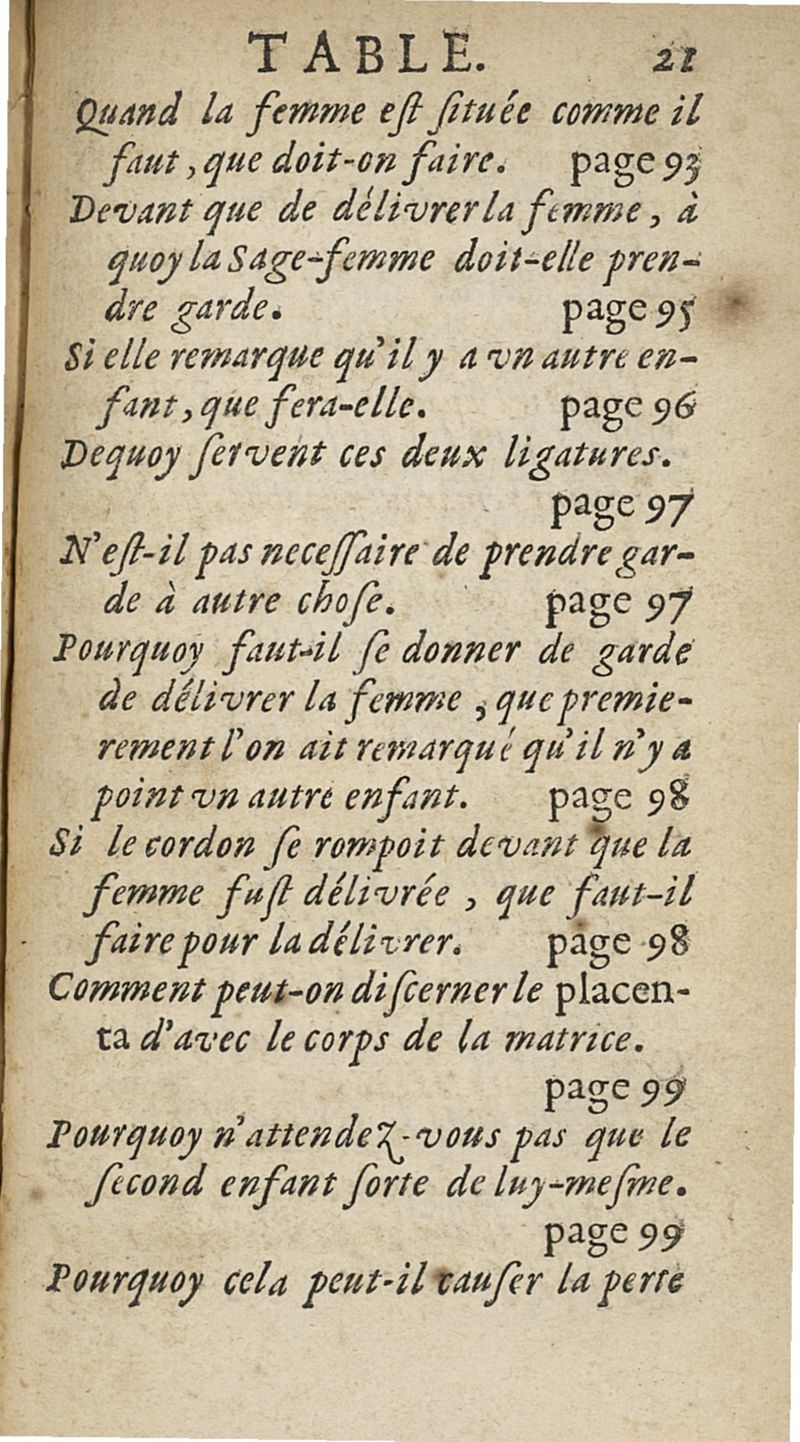 TABLE. 21
Quand la femme est située comme il
faut, que doit-on faire. page 93
Devant que de délivrer la femme, à
quoy la Sage-femme doit-elle pren-
dre garde. page 95
Si elle remarque qu'il y a vn autre en-
fant, que fera-elle. page 96
Dequoy servent ces deux ligatures.
page 97
N'est-il pas necessaire de prendre gar-
de à autre chose. page 97
Pourquoy faut-il se donner de garde
de délivrer la femme, que premie-
rement l'on ait remarqué qu'il n'y a
point vn autre enfant. page 98
Si le cordon se rompoit devant que la
femme fust délivrée, que faut-il
faire pour la délivrer. page 98
Comment peut-on discerner le placen-
ta d'avec le corps de la matrice.
page 99
Pourquoy n'attendez-vous pas que le
second enfant sorte de luy-mesme.
page 99
Pourquoy cela peut-il causer la perte